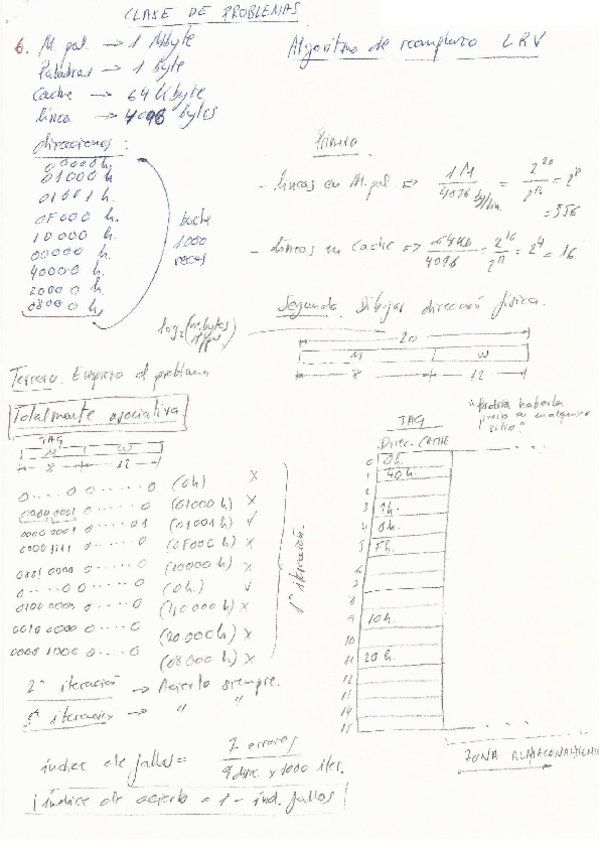 CLASE DE PROBLEMAS
6. M. pal → 1 Mbyte
Palabras → 1 byte
Cache → 64 Kbyte
línea → 4096 bytes
Algoritmo de reemplazo LRU
direcciones :
00000h
01000h
01001h.
0F000h.
10000h.
00000h.
40000h.
20000h.
08000h
bucle
1000
veces
Primero
- líneas en M. pal => 1M / 4096 by/lin = 2^20 / 2^12 = 2^8
= 256
- líneas en Cache => 64KB / 4096 = 2^16 / 2^12 = 2^4 = 16
Segundo. Dibujar dirección física.
log2
20
M W
8 12
Tercero. Empiezo el problema
Totalmente asociativa
TAG
M W
8 12
0.....0 0......0 (0h) x
0000 0001 0.....0 (01000h) x
0000 0001 0.....01 (01001h) ✓
0000 1111 0.....0 (0F000h) x
0001 0000 0.....0 (10000h) x
0.....0 0.....0 (0h.) ✓
0100 0000 0.....0 (40000h) x
0010 0000 0.....0 (20000h) x
0000 1000 0.....0 (08000h) x
1ª iteración.
"Podría haberla
en cualquier
sitio"
TAG
Direc. CACHE
0 0h.
1 40h.
2
3 1h.
4
5 Fh.
6
7
8
9 10h.
10
11 20h.
12
13
14
15
ZONA ALMACENAMIENTO
2ª iteración → Acierto siempre.
iteración → " "
índice de fallos = 7 errores / 9 direc. x 1000 iter.
índice de acierto = 1 - ind. fallos